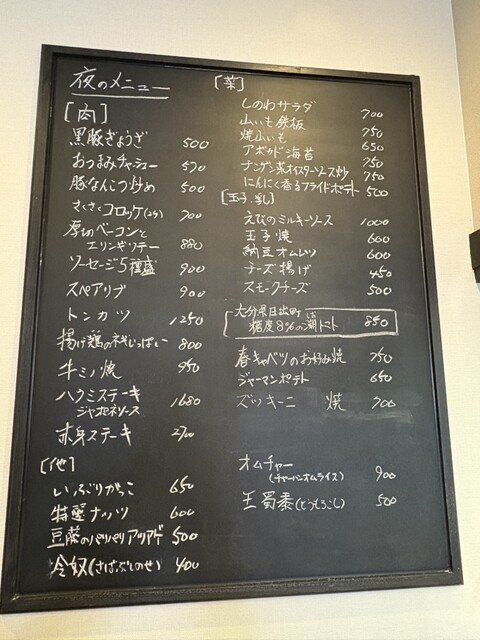 夜のメニュー
[肉]
黒豚ぎょうざ 500
おつまみチャーシュー 570
豚なんこつ炒め 500
さくさくコロッケ(2ケ) 700
厚切ベーコンと
エリンギソテー 880
ソーセージ5種盛 900
スペアリブ 900
トンカツ 1250
揚げ鶏のネギいっぱい 800
牛ミノ焼 950
ハラミステーキ
ジャポネソース 1680
赤身ステーキ 2700
[他]
いぶりがっこ 650
特製ナッツ 600
豆腐のパリパリアツアゲ 500
冷奴(さばぶしのせ) 400
[菜]
しのわサラダ 700
山いも鉄板 750
焼山いも 650
アボカド海苔 750
ナンプラ 炙オイスターソース炒 750
にんにく香るフライドポテト 500
[玉子.乳]
えびのミルキーソース 1000
玉子焼 600
納豆オムレツ 600
チーズ揚げ 450
スモークチーズ 500
大分県日出町
糖度8%の潮トマト 850
春キャベツのお好み焼 750
ジャーマンポテト 650
ズッキーニ 焼 700
オムチャー
(チャーハンオムライス) 900
玉蜀黍(とうもろこし) 500